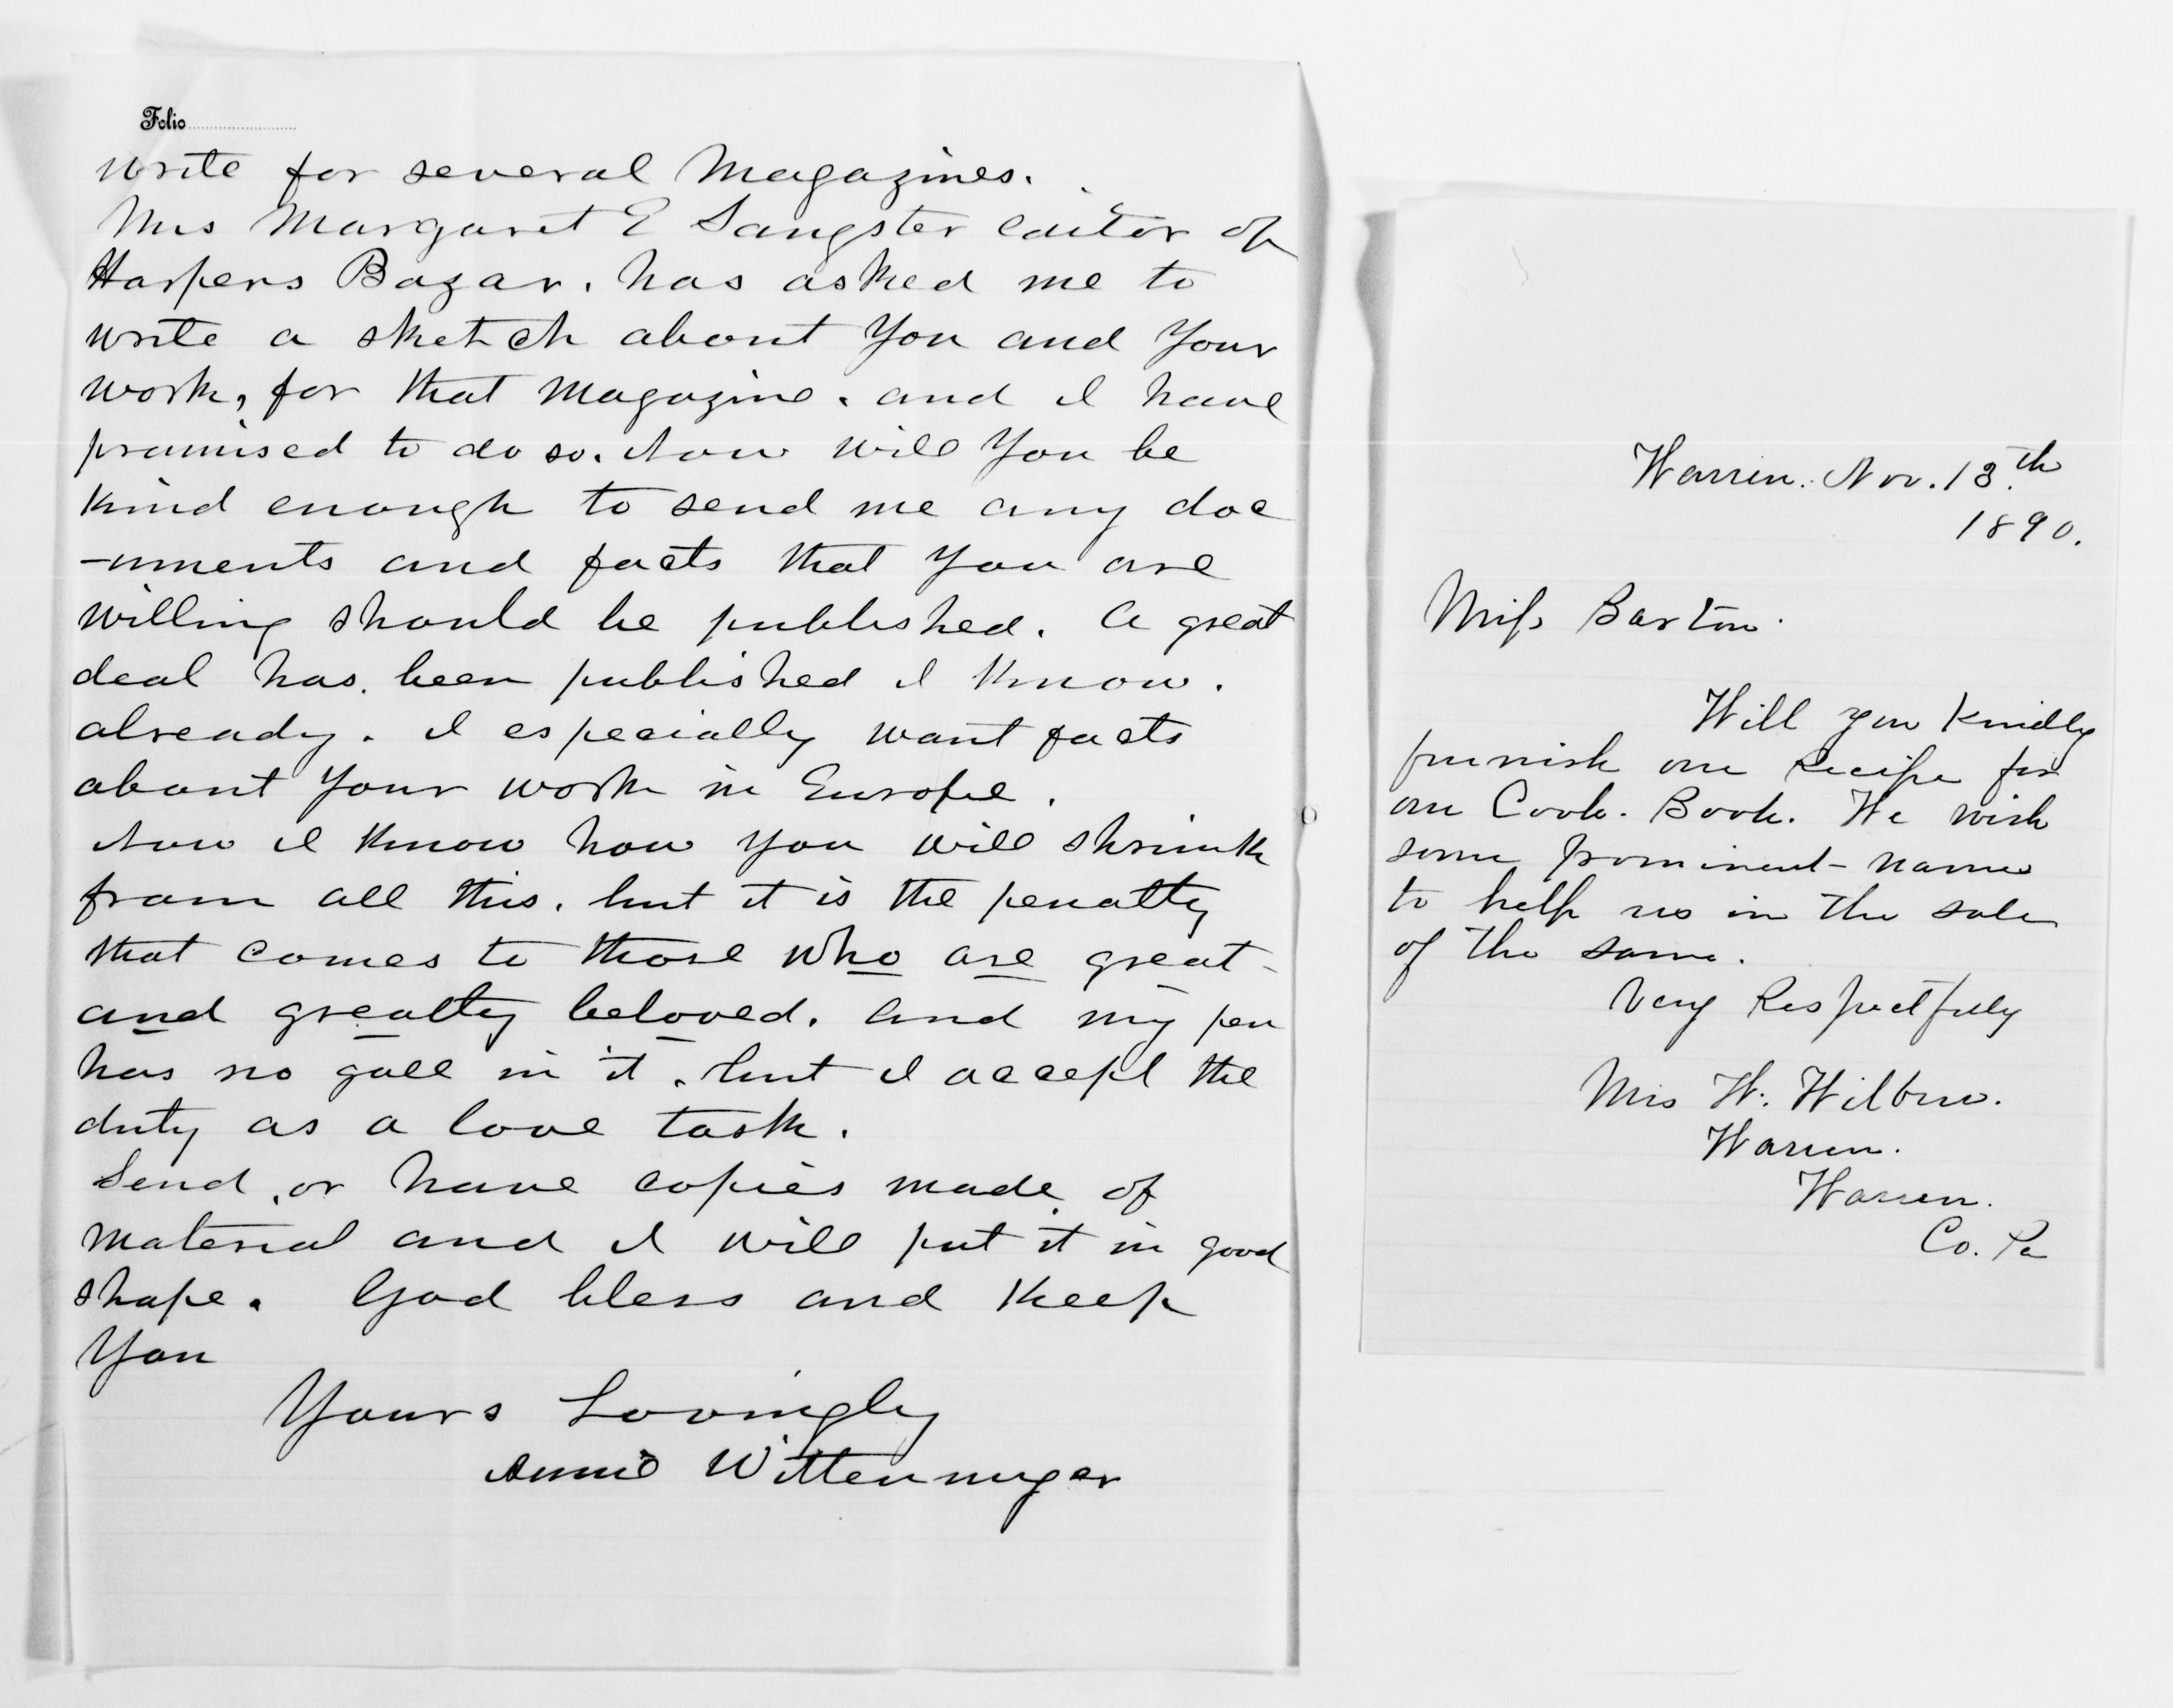 Folio
write for several Magazines.
Mrs Margaret E Sangster editor of
Harpers Bazar. has asked me to
write a sketch about You and Your
work, for that Magazine. and I have
promised to do so. Now will You be
kind enough to send me any doc
-uments and facts that You are
willing should be published. A great
deal has been published I know.
already. I especially want facts
about Your work in Europe.
Now I know how You will shrink
from all this. but it is the penalty
that comes to those who are great-
and greatly beloved. and my pen
has no gall in it. but I accept the
duty as a love task.
Send, or have copies made of
material and I will put it in good
shape. God bless and keep
You
Yours Lovingly
Annie Wittenmyer
Warren. Nov. 13.th
1890.
Miss Barton.
Will you kindly
furnish one Recipe for
our Cook. Book. We wish
some prominent names
to help us in the sale
of the same.
Very Respectfully
Mrs W. Wilbur.
Warren.
Warren.
Co. Pa